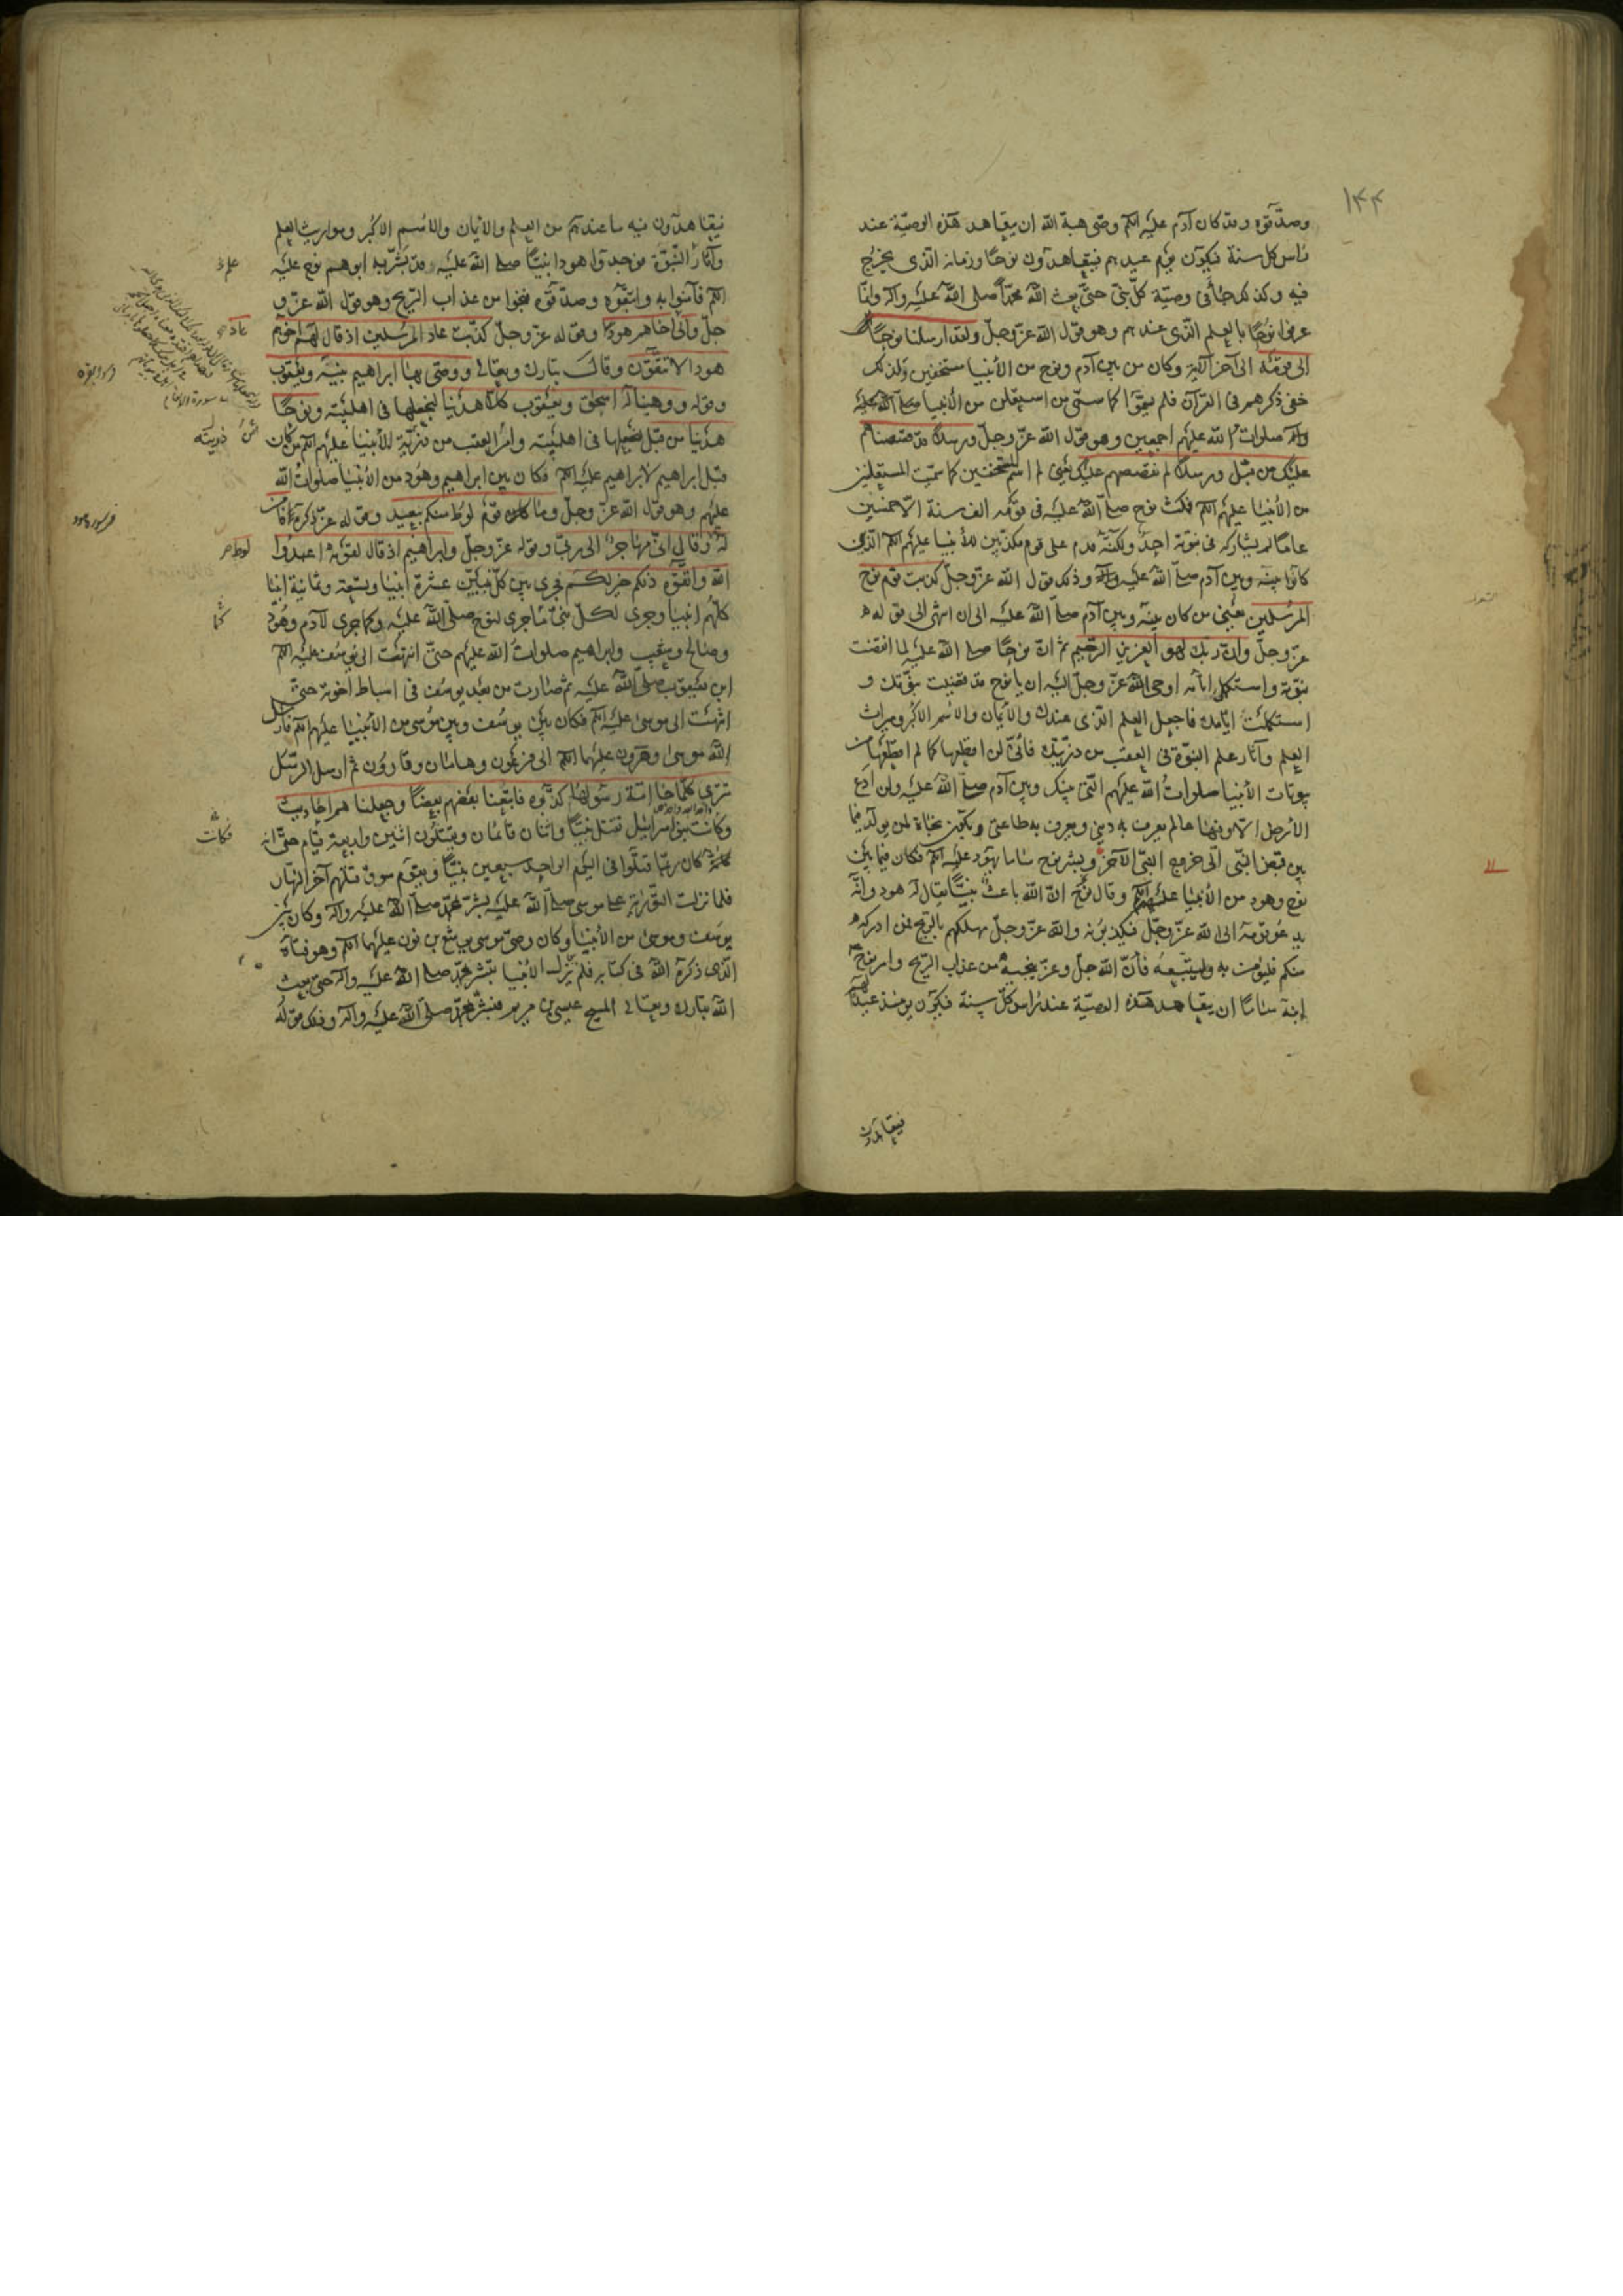 ۱۴۴
وصدّقوه وقد كان آدم عليه السلم وصّى هبة الله ان يتعاهد هذه الوصيّة عند
راس كل سنة فيكون يوم عيدهم فيتعاهدون نوحا وزمانه الذى يخرج
فيه وكذلك جاء فى وصيّة كلّ نبىّ حتّى بعث الله محمّدا صلى الله عليه وآله وانما
عرفوا نوحًا بالعلم الذى عندهم وهو قول الله عزّ وجلّ ولقد ارسلنا نوحًا
الى قومه الى آخر الآية وكان من بين آدم ونوح من الأنبيا مستخفين ولذلك
خفى ذكرهم فى القرآن فلم يسمّوا كما سمّى من استعلن من الأنبيا صلى الله عليه
وآله صلوات الله عليهم اجمعين وهو قول الله عزّ وجلّ ورسلا قد قصصناهم
عليك من قبل ورسلا لم نقصصهم عليك يعنى لم اسمّ المستخفين كما سمّيت المستعلنين
من الأنبيا عليهم السلم فمكث نوح صلى الله عليه فى قومه الف سنة الاّ خمسين
عاما لم يشاركه فى نبوّته احد ولكنّه قدم على قوم مكذّبين للأنبيا عليهم السلم الذين
كانوا بينه وبين آدم صلى الله عليه وآله وذلك قول الله عزّ وجلّ كذبت قوم نوح
المرسلين يعنى من كان بينه وبين آدم صلى الله عليه الى ان انتهى الى قوله
عزّ وجلّ وانّ ربّك لهو العزيز الرّحيم ثم انّ نوحًا صلى الله عليه لما انقضت
نبوّته واستكمل ايّامه اوحى الله عزّ وجلّ اليه ان يا نوح قد قضيت نبوّتك و
استكملت ايّامك فاجعل العلم الذى عندك والأيمان والأسم الاكبر وميراث
العلم وآثار علم النبوّة فى العقب من ذريّتك فانّى لن اقطعها كما لم اقطعها من
بيوتات الأنبيا صلوات الله عليهم التى بينك وبين آدم صلى الله عليه ولن ادع
الأرض الاّ وفيها عالم يعرف به دينى ويعرف به طاعتى ويكون نجاة لمن يولد فيما
بين قبض النبّى الى خروج النبّى الآخر وبشر نوح ساما بهود عليه السلم فكان فيما بين
نوح وهود من الأنبيا عليهم السلم وقال نوح انّ الله باعث نبيًّا يقال له هود وانّه
يدعو قومه الى الله عزّ وجلّ فيكذبونه والله عزّ وجلّ مهلكهم بالريح فمن ادركه
منكم فليؤمن به وليتّبعه فأنّ الله جلّ وعزّ ينجيه من عذاب الرّيح وامر نوح
ابنه ساما ان يتعاهد هذه الوصيّة عند راس كلّ سنة فيكون يومئذ عيدا
فيتعاهدون
فيتعاهدون فيه ما عندهم من العلم والأيمان والأسم الاكبر ومواريث العلم
وآثار النبّوة فوجدوا هودا نبيًّا صلى الله عليه وقد بشّر به ابوهم نوح عليه
السلم فآمنوا به واتبّعوه وصدّقوه فنجوا من عذاب الرّيح وهو قول الله عزّ و
جلّ والى عاد اخاهم هودا وقوله عزّ وجلّ كذّبت عاد المرسلين اذ قال لهم اخوهم
هود الا تتّقون وقال تبارك وتعالى ووصّى بها ابراهيم بنيه ويعقوب
وقوله ووهبنا له اسحق ويعقوب كلاّ هدينا لنجعلها فى اهل بيته ونوحًا
هدينا من قبل لنجعلها فى اهل بيته وامر العقب من ذريّة الأنبيا عليهم السلم من كان
قبل ابراهيم لابراهيم عليه السلم فكان بين ابراهيم وهود من الأنبيا صلوات الله
عليهم وهو قول الله عزّ وجلّ وما كان قوم لوط منكم ببعيد وقوله عزّ ذكره فآمن
له وقال انّى مهاجر الى ربّى وقوله عزّ وجلّ وابراهيم اذ قال لقومه اعبدوا
الله واتّقوه ذلكم خير لكم فجرى بين كلّ نبيّين عشرة انبيا وتسعة وثمانية انبيا
كلّهم انبيا وجرى لكلّ نبىّ ما جرى لنوح صلى الله عليه وكما جرى لآدم وهود
وصالح وشعيب وابراهيم صلوات الله عليهم حتّى انتهت الى يوسف عليه السلم
ابن يعقوب صلى الله عليه ثم صارت من بعد يوسف فى اسباط اخوته حتّى
انتهت الى موسى عليه السلم فكان بين يوسف وبين موسى من الأنبيا عليهم السلم فارسل
الله موسى وهرون عليهما السلم الى فرعون وهامان وقارون ثم ارسل الرّسل
تترى كلّما جاء امّة رسولها كذّبوه فاتبعنا بعضهم بعضًا وجعلنا هم احاديث
وكانت بنو اسرائيل تقتل نبيًّا واثنان قائمان ويقتلون اثنين واربعة قيام حتّى انه
كان ربّما قتلوا فى اليوم الواحد سبعين نبيًّا ويقوم سوق قتلهم آخر النهار
فلما نزلت التّورية على موسى صلى الله عليه بشر بمحمّد صلى الله عليه وآله وكان بين
يوسف وموسى من الأنبيا وكان وصىّ موسى يوشع بن نون عليهما السلم وهو فتاه
الّذى ذكره الله فى كتابه فلم تزل الأنبيا تبشر بمحمّد صلى الله عليه وآله حتى بعث
الله تبارك وتعالى المسيح عيسى بن مريم فبشّر بمحمّد صلى الله عليه وآله وذلك قوله
علم
عاد
سورة الانعام
ذريته
لوط
كما
فكانت